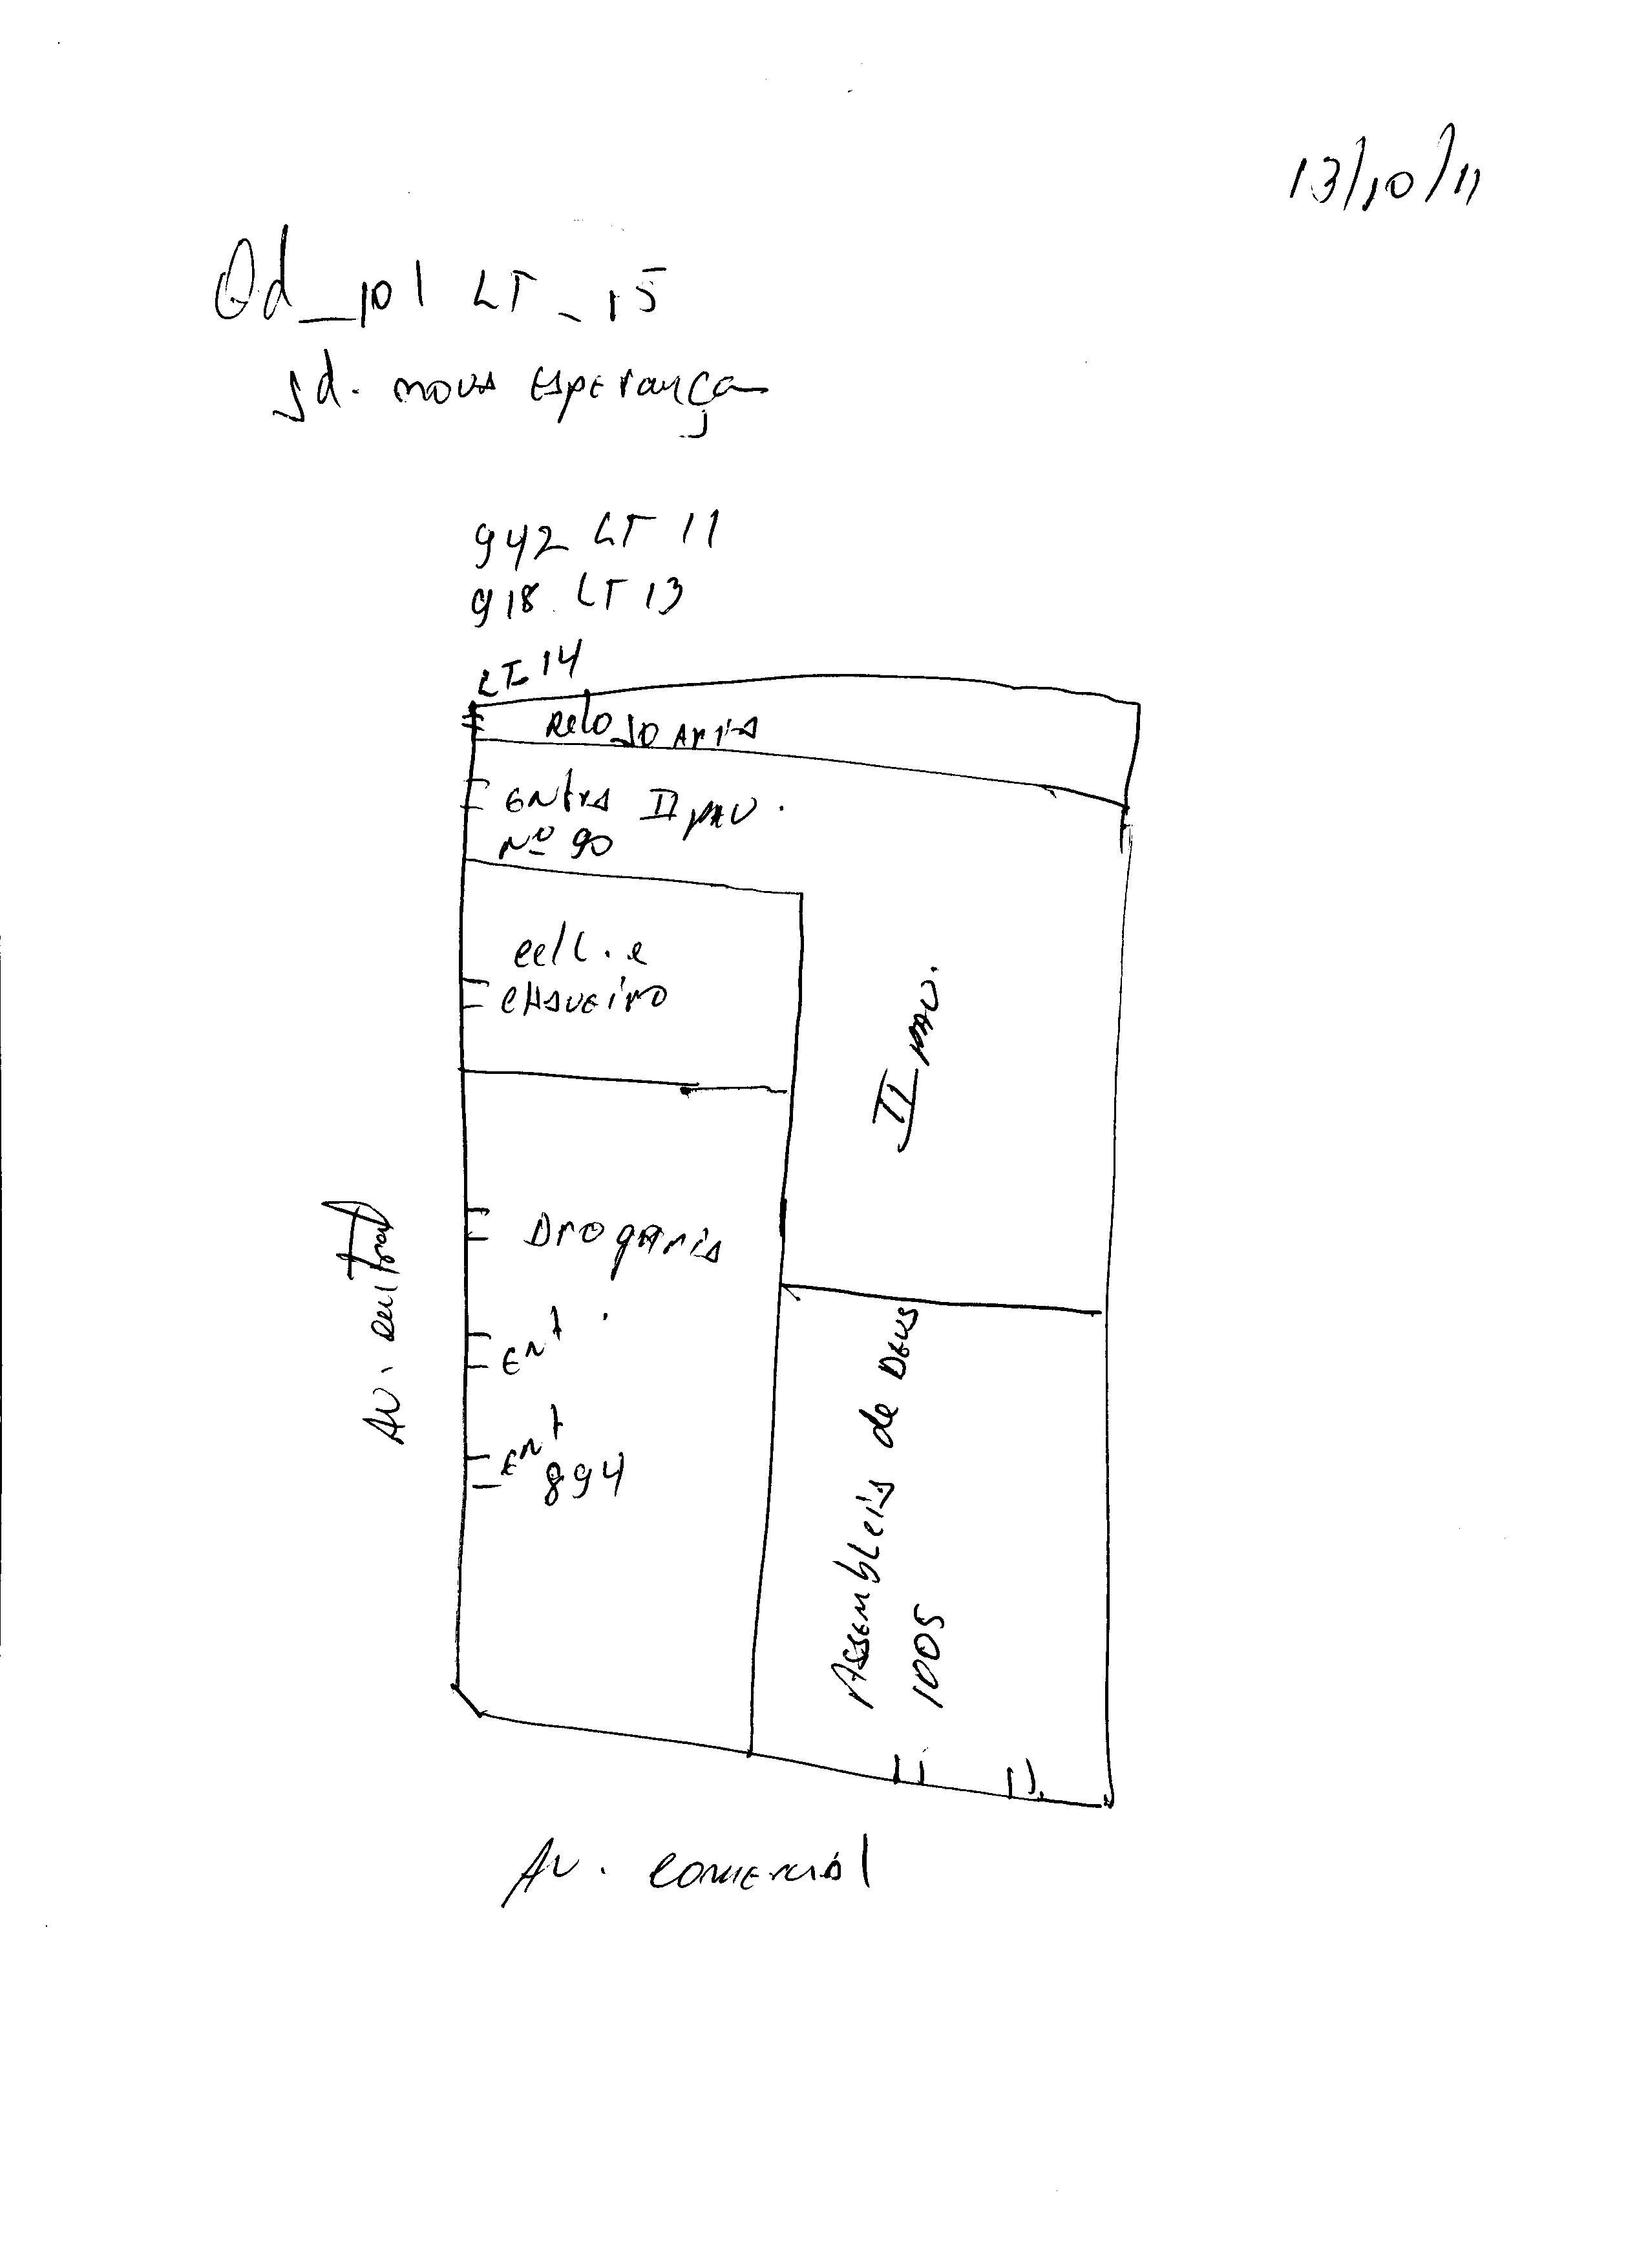 13/10/11
Qd_101 LT_15
Jd. nova Esperança
942 LT 11
918. LT 13
LT-14
Relojoaria
Entra II pav.
Nº 90
cell. e
chaveiro
II pav.
Drogaria
Ent.
Ent
894
Av. central
Assembleia de Deus
1005
Av. comercial